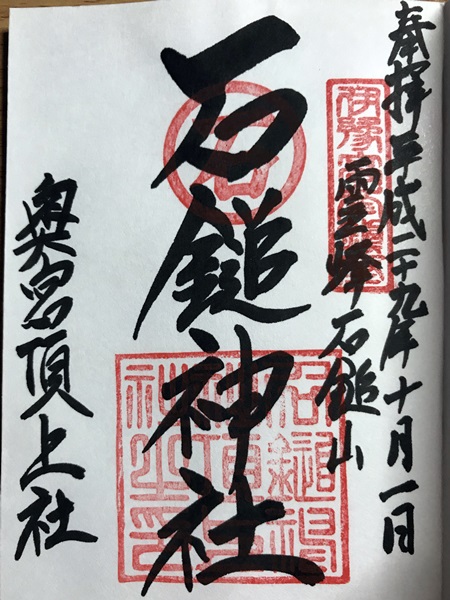 奉拝 平成二十九年十月一日
霊峰石鎚山
石鎚神社
奥宮頂上社